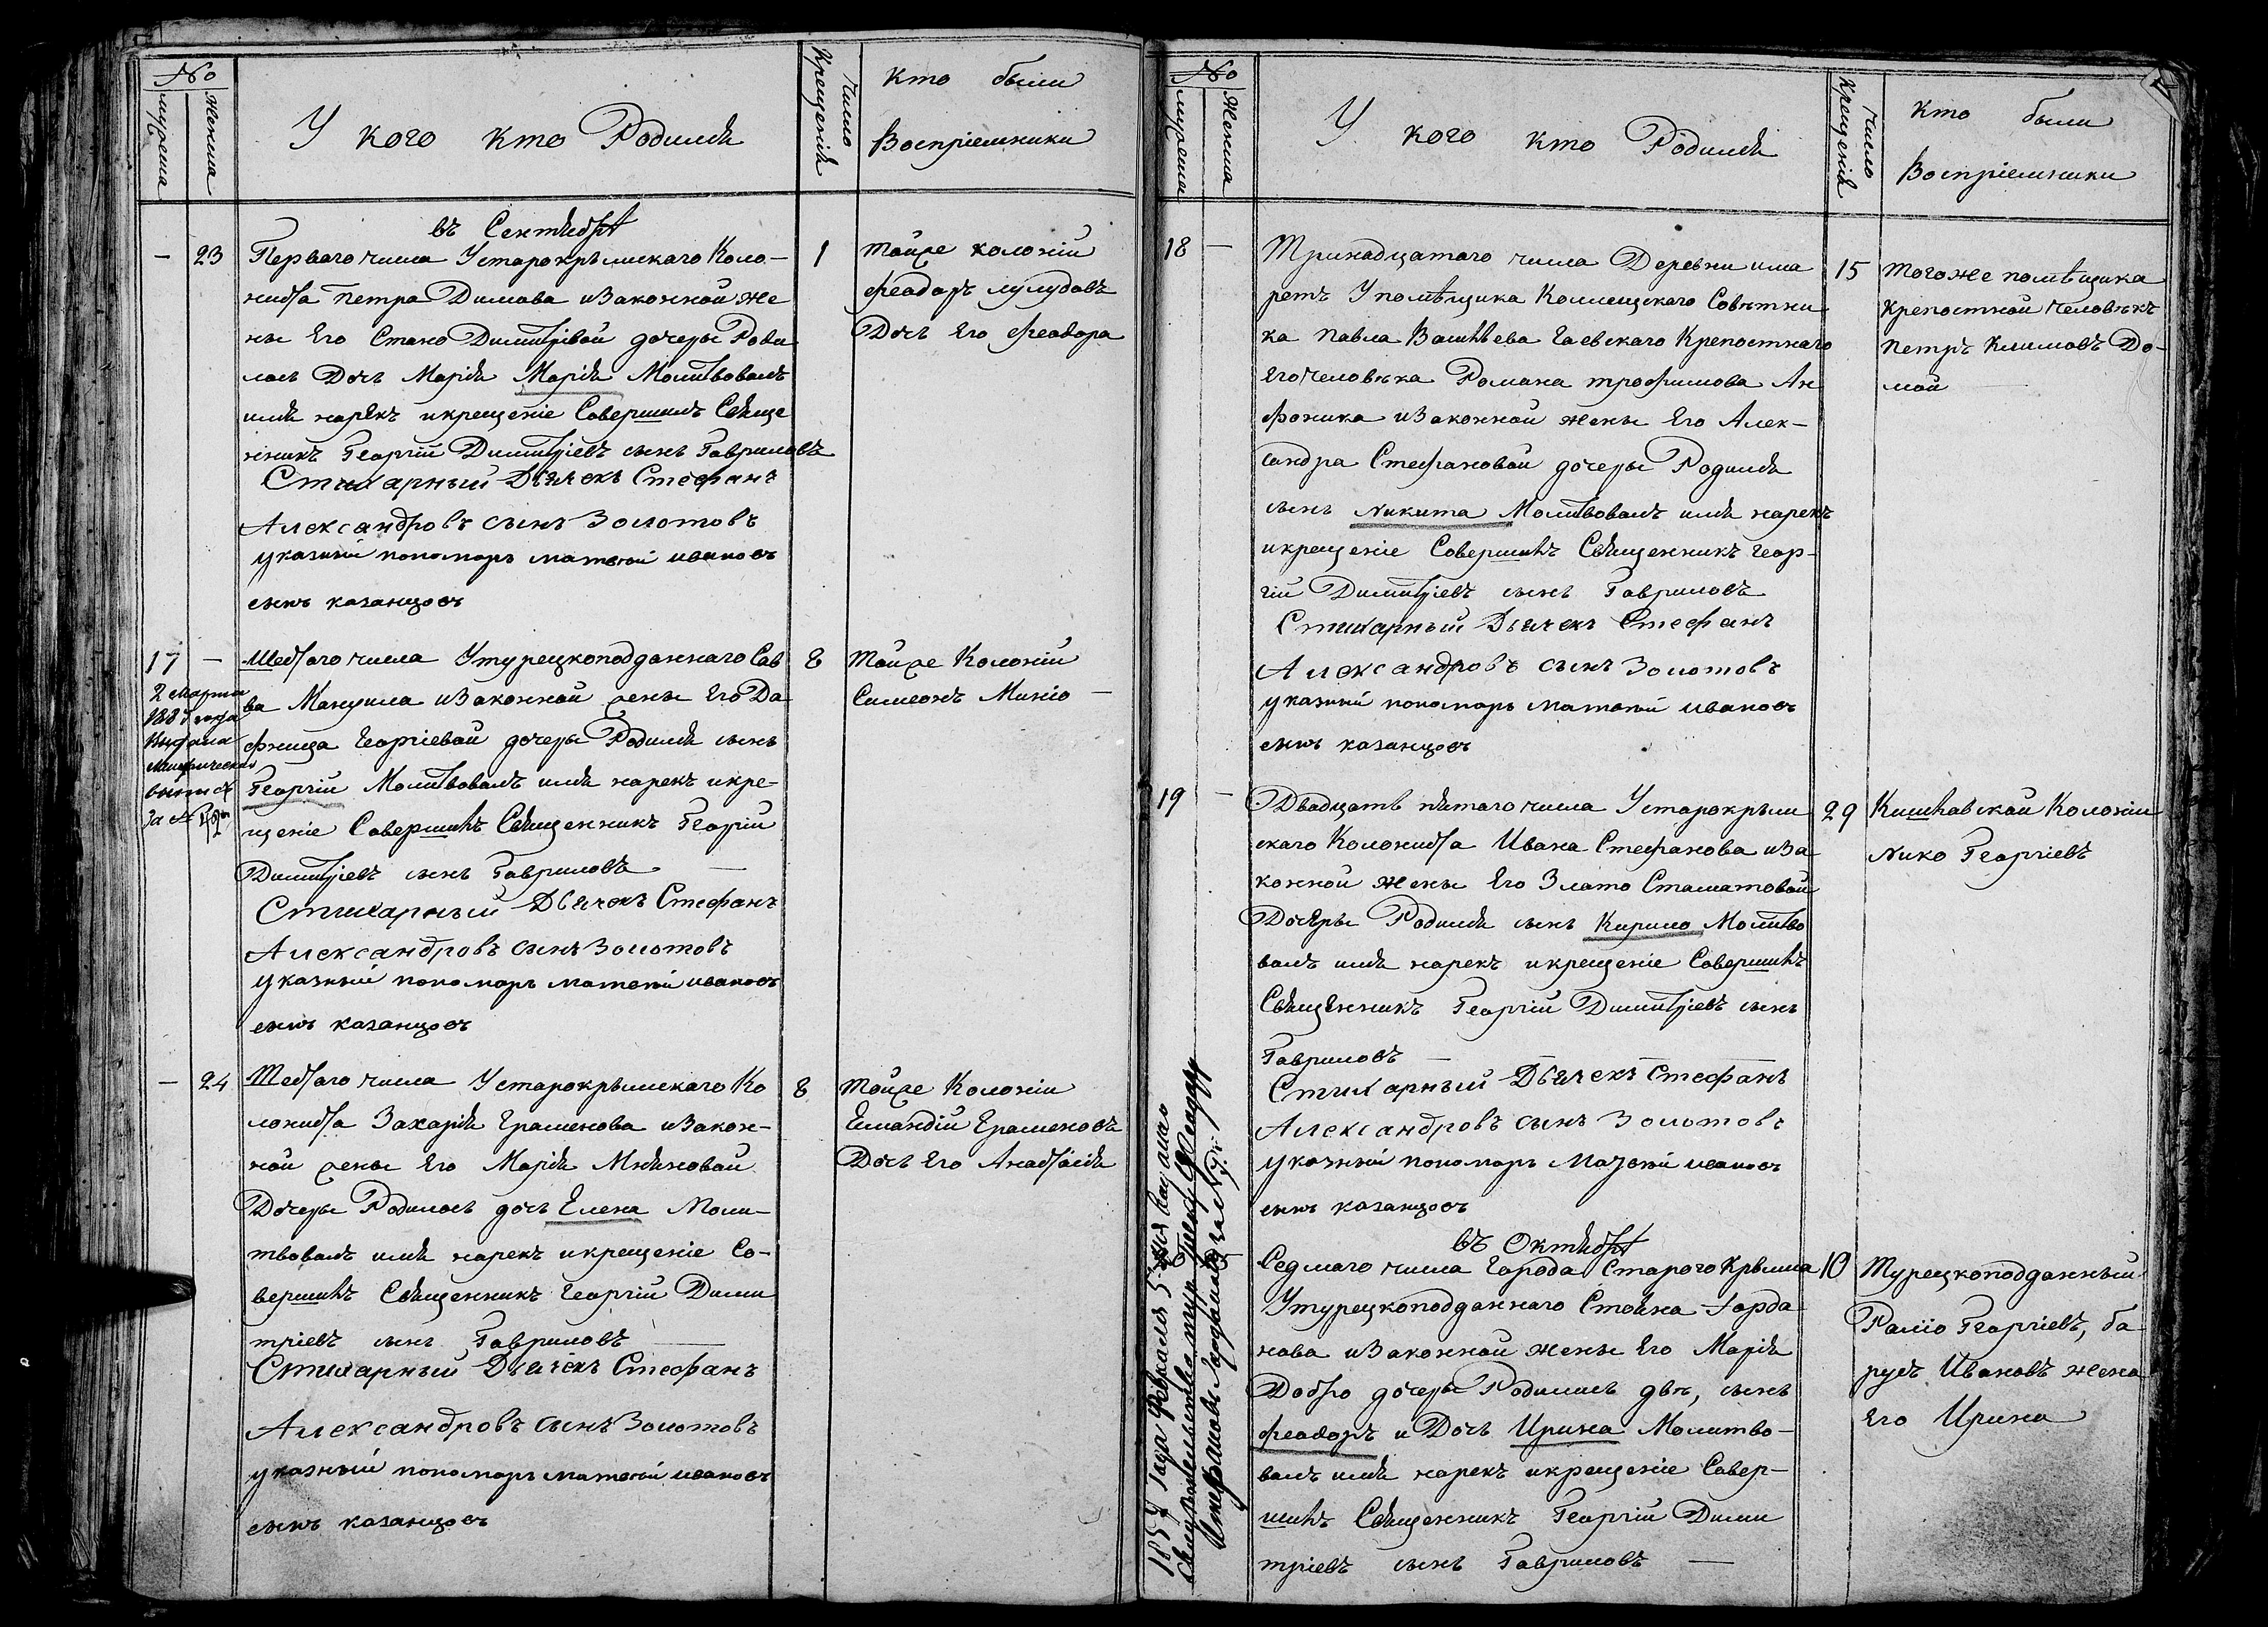 №
мужеска
женска
У кого кто Родился
Число
Крещенія
Кто были
Воспріемники
въ Сентября
— 23
Перваго числа У старокрымскаго Коло-
ниста Петра Димова и Законной же
ны Его Стано Димитріевой дочеры Роди
лось Дочь Марія Марія Молитвовалъ
имя нарекъ и крещеніе Совершилъ Свяще
нникъ Георгій Димитріевъ сынъ Гавриловъ
Стихарный Дьячекъ Стефанъ
Александровъ сынъ Золотовъ
указный пономарь матвей ивановъ
сынъ казанцовъ
1
Тойже колоніи
Феодоръ лулудовъ
Дочь Его Феодора
17 —
2 Марта
года
выдана
метрическая
выпись
за №
Шестаго числа У турецкоподданнаго Сав
ва Мануила и Законной жены Его Да
фница Георгіевой дочеры Родился сынъ
Георгій Молитвовалъ имя нарекъ и кре-
щеніе Совершилъ Священникъ Георгій
Димитріевъ сынъ Гавриловъ —
Стихарный Дьячекъ Стефанъ
Александровъ сынъ Золотовъ
указный пономарь матвей ивановъ
сынъ казанцовъ
8
Тойже Колоніи
Симеонъ Минчо —
— 24
Шестаго числа У старокрымскаго Ко
лониста Захарія Граменова и Закон-
ной жены Его Марія Миновой
Дочеры Родилось дочь Елена Моли-
твовалъ имя нарекъ и крещеніе Со-
вершилъ Священникъ Георгій Дими
тріевъ сынъ Гавриловъ —
Стихарный Дьячекъ Стефанъ
Александровъ сынъ Золотовъ
указный пономарь матвей ивановъ
сынъ казанцовъ
8
Тойже Колоніи
Граменовъ
Дочь Его Анастасія
№
мужеска
женска
У кого кто Родился
Число
Крещенія
Кто были
Воспріемники
18 —
Тринадцатаго числа Деревни има
ретъ У помѣщика Коллежскаго Совѣтни
ка Павла Васильева Гаевскаго Крепостнаго
Его человѣка Романа трофимова Ан
фоника и Законной жены Его Алек-
сандра Стефановой дочеры Родился
сынъ Никита Молитвовалъ имя нарекъ
и крещеніе Совершилъ Священникъ Геор-
гій Димитріевъ сынъ Гавриловъ
Стихарный Дьячекъ Стефанъ
Александровъ сынъ Золотовъ
указный пономарь матвей ивановъ
сынъ казанцовъ
15
Тогоже помѣщика
Крепостной человѣкъ
Петръ Климовъ До-
мой
19 —
Двадцать пятаго числа У старокрым
скаго Колониста Ивана Стефанова и За
конной жены Его Злато Стаматовой
Дочеры Родился сынъ Кирило Молитво
валъ имя нарекъ и крещеніе Совершилъ
Священникъ Георгій Димитріевъ сынъ
Гавриловъ —
Стихарный Дьячекъ Стефанъ
Александровъ сынъ Золотовъ
указный пономарь матвей ивановъ
сынъ казанцовъ
29
Кишлавской Колоніи
Нико Георгіевъ
1857 года Февраля 5 дня выдано
Свидѣтельство тур: Греку Феодору
за №
въ Октября
Седмаго числа Города Старого Крыма
У турецкоподданнаго Стояна Іорда
нова и Законной жены Его Марія
Добро дочеры Родились двѣ, сынъ
Феодоръ и Дочь Ирина Молитво-
валъ имя нарекъ и крещеніе Совер-
шилъ Священникъ Георгій Дими
тріевъ сынъ Гавриловъ —
10
Турецкоподданный
Георгіевъ, ба
рудъ Ивановъ жена
Его Ирина